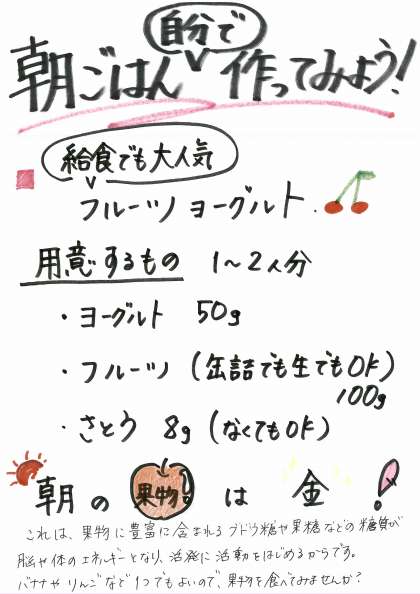 自分で
朝ごはん 作ってみよう!
給食でも大人気
フルーツ ヨーグルト.
用意するもの 1〜2人分
・ヨーグルト 50g
・フルーツ (缶詰でも生でもOK)
100g
・さとう 8g (なくてもOK)
朝の果物は金!
これは、果物に豊富に含まれるブドウ糖や果糖などの糖質が
脳や体のエネルギーとなり、活発に活動をはじめるからです。
バナナやりんごなど1つでもよいので、果物を食べてみませんか?